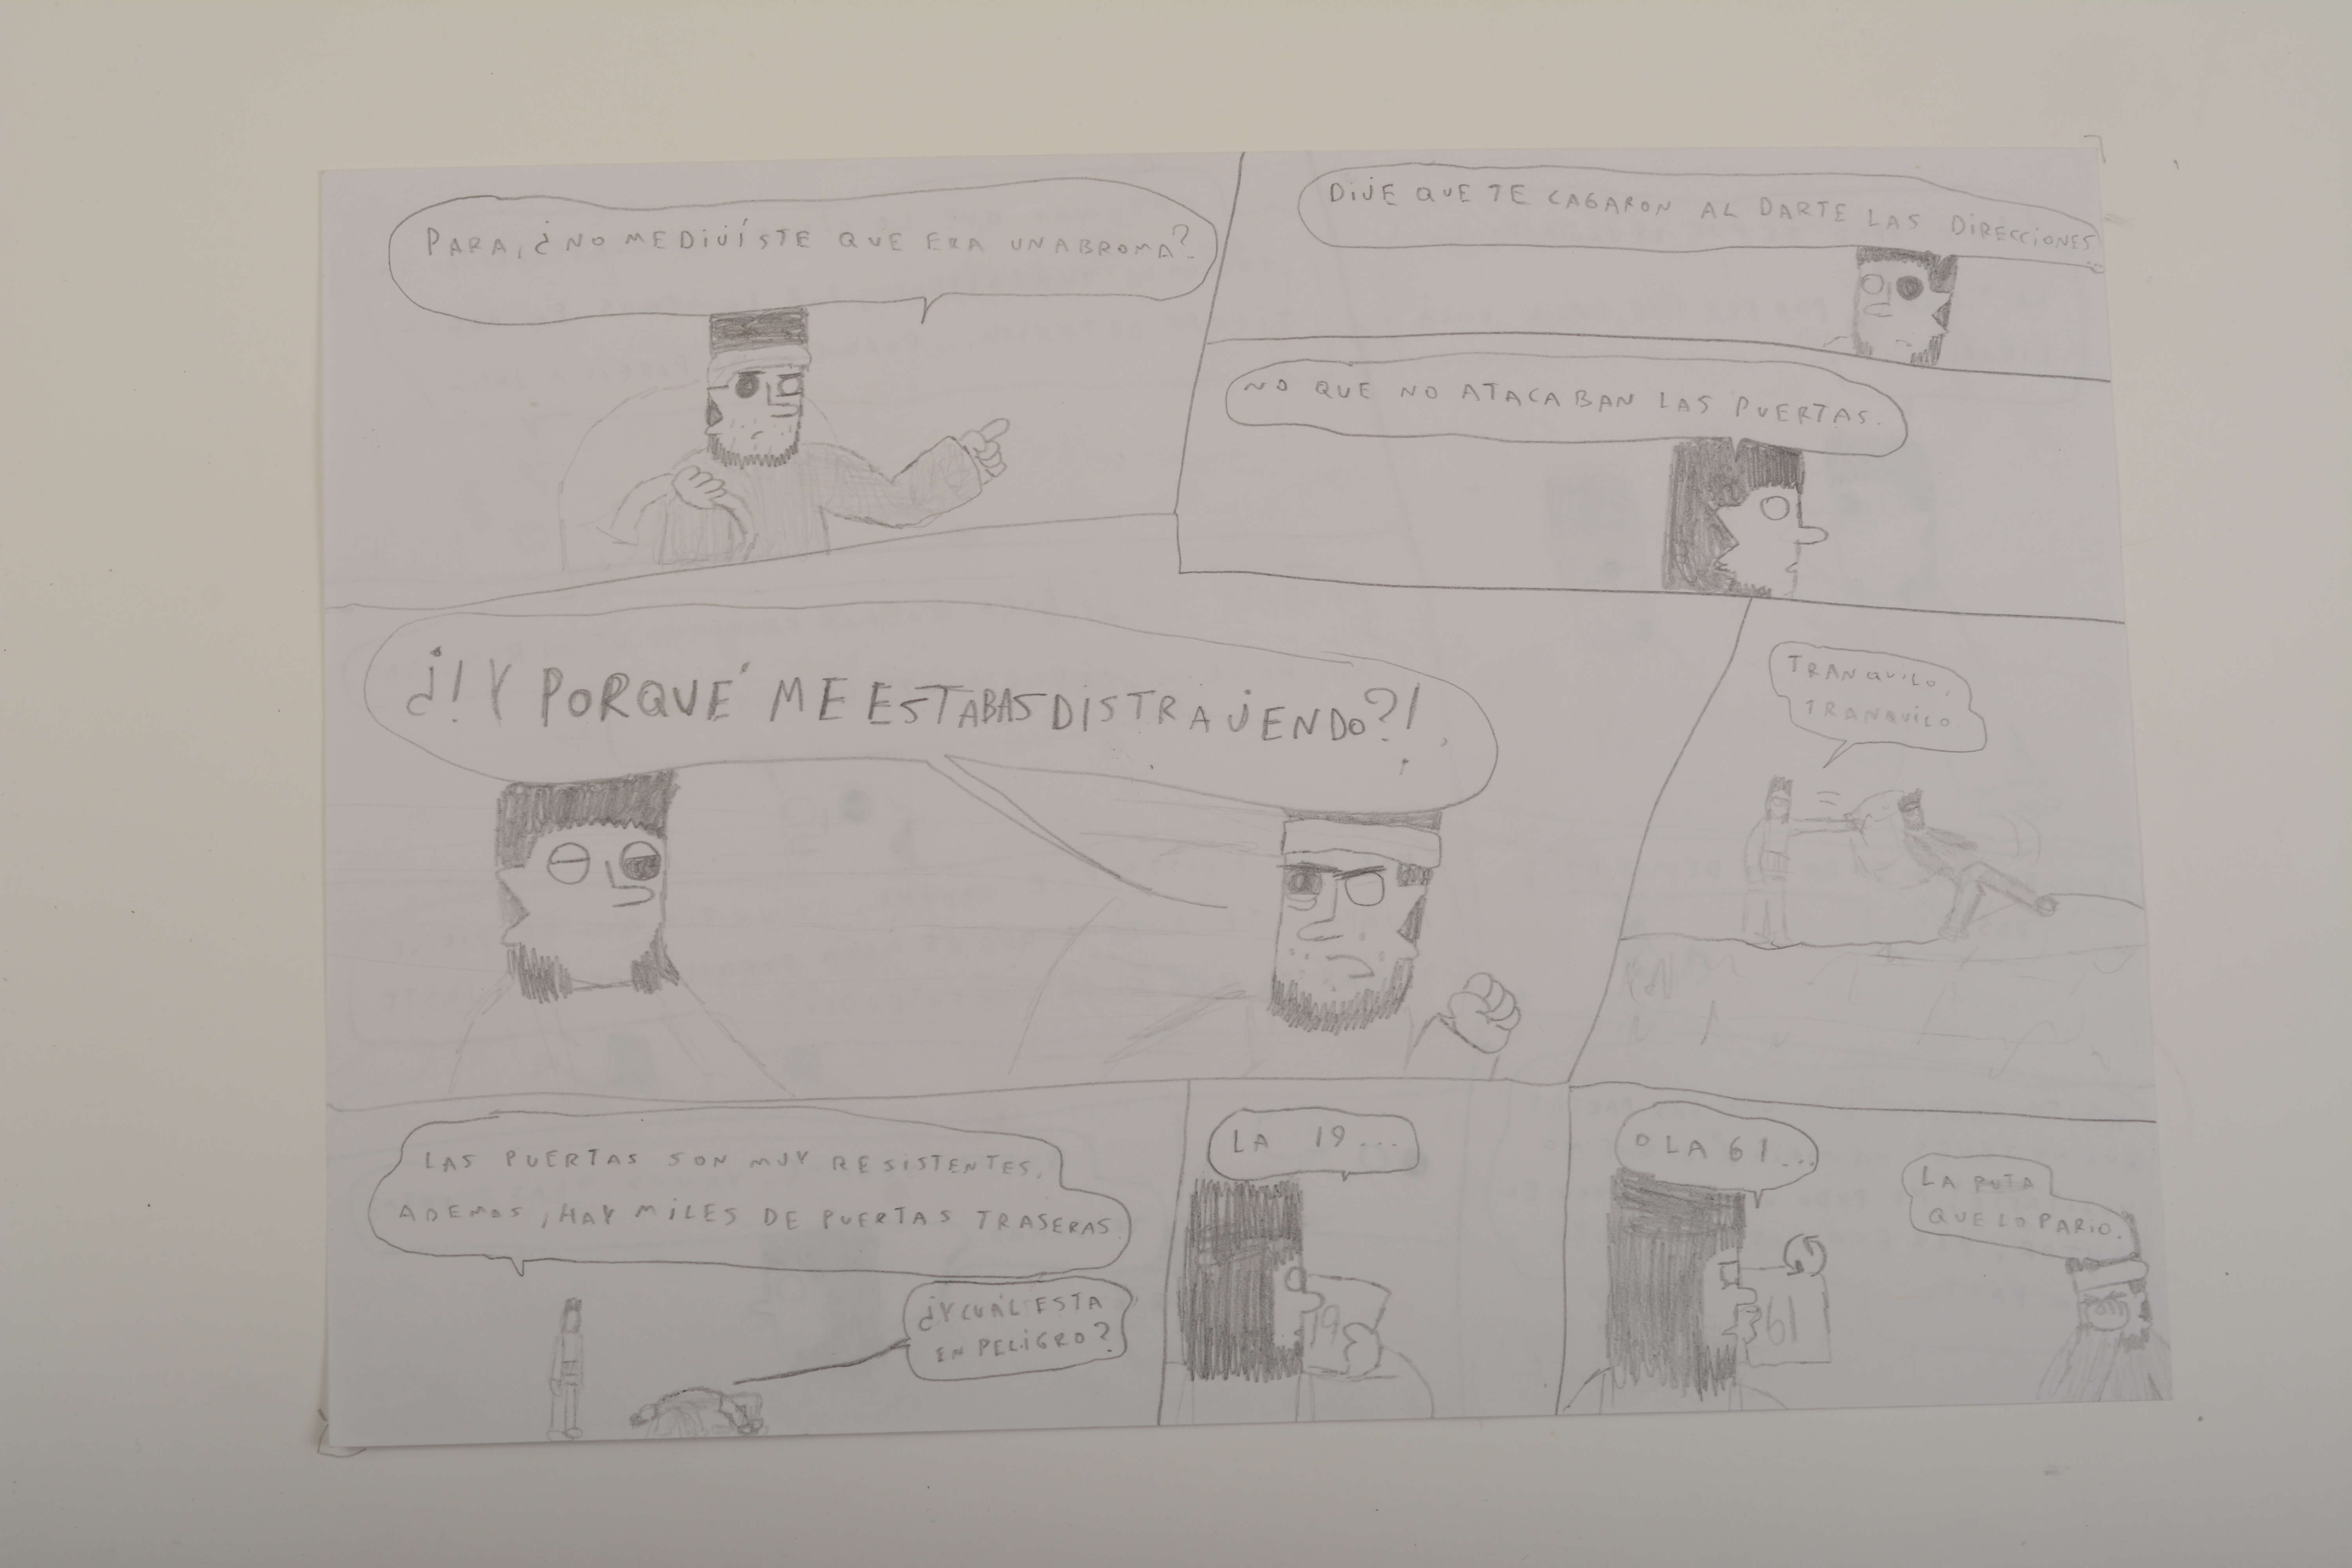 PARA, ¿NO ME DIJÍSTE QUE ERA UNA BROMA?
DIJE QUE TE CAGARON AL DARTE LAS DIRECCIONES
NO QUE NO ATACABAN LAS PUERTAS.
¿!Y PORQUÉ ME ESTABAS DISTRAJENDO?!
TRANQUILO,
TRANQUILO
LAS PUERTAS SON MUY RESISTENTES.
ADEMAS, HAY MILES DE PUERTAS TRASERAS
¿Y CUÁL ESTA
EN PELIGRO?
LA 19...
19
O LA 61...
61
LA PUTA
QUE LO PARIO.